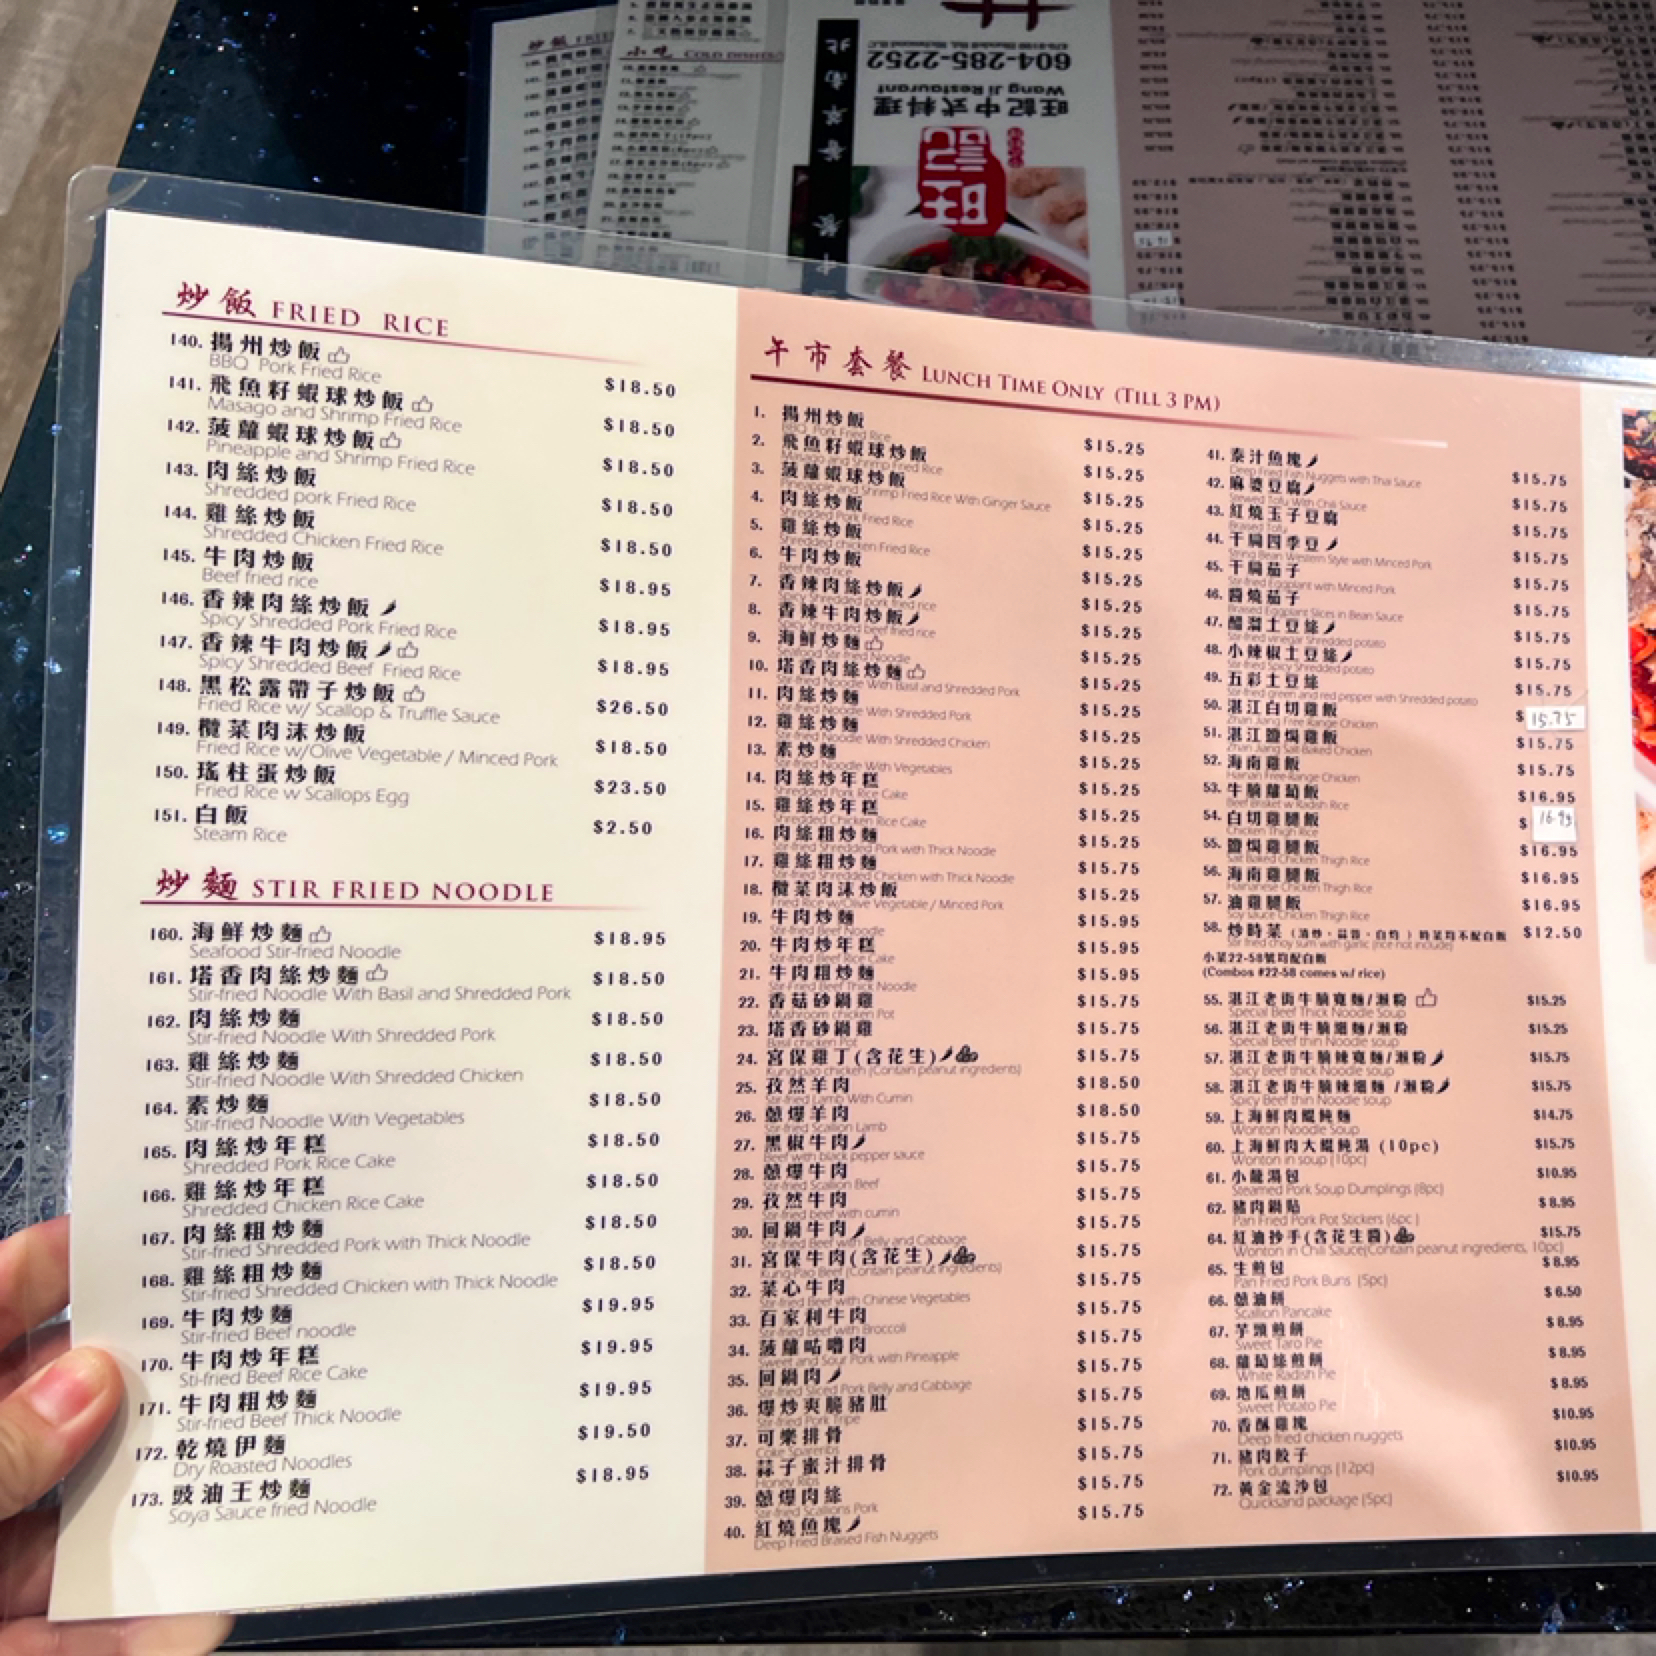 604-285-2252
Wang Ji Restaurant
旺記中式料理
旺記
小吃 COLD DISHES
炒飯 FRIED RICE
140. 揚州炒飯
BBQ Pork Fried Rice $18.50
141. 飛魚籽蝦球炒飯
Masago and Shrimp Fried Rice $18.50
142. 菠蘿蝦球炒飯
Pineapple and Shrimp Fried Rice $18.50
143. 肉絲炒飯
Shredded pork Fried Rice $18.50
144. 雞絲炒飯
Shredded Chicken Fried Rice $18.50
145. 牛肉炒飯
Beef fried rice $18.95
146. 香辣肉絲炒飯
Spicy Shredded Pork Fried Rice $18.95
147. 香辣牛肉炒飯
Spicy Shredded Beef Fried Rice $18.95
148. 黑松露帶子炒飯
Fried Rice w/ Scallop & Truffle Sauce $26.50
149. 欖菜肉沫炒飯
Fried Rice w/Olive Vegetable / Minced Pork $18.50
150. 瑤柱蛋炒飯
Fried Rice w Scallops Egg $23.50
151. 白飯
Steam Rice $2.50
炒麵 STIR FRIED NOODLE
160. 海鮮炒麵
Seafood Stir-fried Noodle $18.95
161. 塔香肉絲炒麵
Stir-fried Noodle With Basil and Shredded Pork $18.50
162. 肉絲炒麵
Stir-fried Noodle With Shredded Pork $18.50
163. 雞絲炒麵
Stir-fried Noodle With Shredded Chicken $18.50
164. 素炒麵
Stir-fried Noodle With Vegetables $18.50
165. 肉絲炒年糕
Shredded Pork Rice Cake $18.50
166. 雞絲炒年糕
Shredded Chicken Rice Cake $18.50
167. 肉絲粗炒麵
Stir-fried Shredded Pork with Thick Noodle $18.50
168. 雞絲粗炒麵
Stir-fried Shredded Chicken with Thick Noodle $18.50
169. 牛肉炒麵
Stir-fried Beef noodle $19.95
170. 牛肉炒年糕
Sti-fried Beef Rice Cake $19.95
171. 牛肉粗炒麵
Stir-fried Beef Thick Noodle $19.95
172. 乾燒伊麵
Dry Roasted Noodles $19.50
173. 豉油王炒麵
Soya Sauce fried Noodle $18.95
午市套餐 LUNCH TIME ONLY (TILL 3 PM)
1. 揚州炒飯
BBQ Pork Fried Rice $15.25
2. 飛魚籽蝦球炒飯
Masago and Shrimp Fried Rice $15.25
3. 菠蘿蝦球炒飯
Pineapple and Shrimp Fried Rice With Ginger Sauce $15.25
4. 肉絲炒飯
Shredded Pork Fried Rice $15.25
5. 雞絲炒飯
Shredded chicken Fried Rice $15.25
6. 牛肉炒飯
Beef fried rice $15.25
7. 香辣肉絲炒飯
Spicy Shredded pork fried rice $15.25
8. 香辣牛肉炒飯
Spicy Shredded beef fried rice $15.25
9. 海鮮炒麵
Seafood Stir-fried Noodle $15.25
10. 塔香肉絲炒麵
Stir-fried Noodle With Basil and Shredded Pork $15.25
11. 肉絲炒麵
Stir-fried Noodle With Shredded Pork $15.25
12. 雞絲炒麵
Stir-fried Noodle With Shredded Chicken $15.25
13. 素炒麵
Stir-fried Noodle With Vegetables $15.25
14. 肉絲炒年糕
Shredded Pork Rice Cake $15.25
15. 雞絲炒年糕
Shredded Chicken Rice Cake $15.25
16. 肉絲粗炒麵
Stir-fried Shredded Pork with Thick Noodle $15.25
17. 雞絲粗炒麵
Stir-fried Shredded Chicken with Thick Noodle $15.75
18. 欖菜肉沫炒飯
Fried Rice w/Olive Vegetable / Minced Pork $15.25
19. 牛肉炒麵
Stir-fried Beef Noodle $15.95
20. 牛肉炒年糕
Stir-fried Beef Rice Cake $15.95
21. 牛肉粗炒麵
Stir-Fried Beef Thick Noodle $15.95
22. 香菇砂鍋雞
Mushroom chicken Pot $15.75
23. 塔香砂鍋雞
Basil chicken Pot $15.75
24. 宮保雞丁(含花生)
Kung-pao chicken (Contain peanut ingredients) $15.75
25. 孜然羊肉
Stir-fried Lamb With Cumin $18.50
26. 蔥爆羊肉
Stir-fried Scallion Lamb $18.50
27. 黑椒牛肉
Beef with black pepper sauce $15.75
28. 蔥爆牛肉
Stir-fried Scallion Beef $15.75
29. 孜然牛肉
Stir-fried beef with cumin $15.75
30. 回鍋牛肉
Stir-fried Beef with Belly and Cabbage $15.75
31. 宮保牛肉(含花生)
Kung-Pao Beef (Contain peanut ingredients) $15.75
32. 菜心牛肉
Stir-fried Beef with Chinese Vegetables $15.75
33. 百家利牛肉
Stir-fried Beef with Broccoli $15.75
34. 菠蘿咕嚕肉
Sweet and Sour Pork with Pineapple $15.75
35. 回鍋肉
Stir-fried Sliced Pork Belly and Cabbage $15.75
36. 爆炒爽脆豬肚
Stir-fried Pork Tripe $15.75
37. 可樂排骨
Coke Spareribs $15.75
38. 蒜子蜜汁排骨
Honey Ribs $15.75
39. 蔥爆肉絲
Stir-fried Scallions Pork $15.75
40. 紅燒魚塊
Deep Fried Braised Fish Nuggets $15.75
41. 泰汁魚塊
Deep Fried Fish Nuggets with Thai Sauce $15.75
42. 麻婆豆腐
Stewed Tofu With Chili Sauce $15.75
43. 紅燒玉子豆腐
Braised Tofu $15.75
44. 干扁四季豆
String Bean Western Style with Minced Pork $15.75
45. 干扁茄子
Stir-fried Eggplant with Minced Pork $15.75
46. 醬燒茄子
Braised Eggplant Slices in Bean Sauce $15.75
47. 醋溜土豆絲
Stir-fried vinegar Shredded potato $15.75
48. 小辣椒土豆絲
Stir-fried Spicy Shredded potato $15.75
49. 五彩土豆絲
Stir-fried green and red pepper with Shredded potato $15.75
50. 湛江白切雞飯
Zhan Jiang Free Range Chicken $15.75
51. 湛江鹽焗雞飯
Zhan Jiang Salt-Baked Chicken $15.75
52. 海南雞飯
Hainan Free-Range Chicken $15.75
53. 牛腩蘿蔔飯
Beef Brisket w Radish Rice $16.95
54. 白切雞腿飯
Chicken Thigh Rice $16.95
55. 鹽焗雞腿飯
Salt Baked Chicken Thigh Rice $16.95
56. 海南雞腿飯
Hainanese Chicken Thigh Rice $16.95
57. 油雞腿飯
Soy sauce Chicken Thigh Rice $16.95
58. 炒時菜 (清炒、蒜蓉、白灼) 時菜均不配白飯
Stir fried choy sum with garlic (rice not include) $12.50
小菜22-58號均配白飯
(Combos #22-58 comes w/ rice)
55. 湛江老街牛腩寬麵/瀨粉
Special Beef Thick Noodle Soup $15.25
56. 湛江老街牛腩細麵/瀨粉
Special Beef thin Noodle soup $15.25
57. 湛江老街牛腩辣寬麵/瀨粉
Spicy Beef thick Noodle soup $15.75
58. 湛江老街牛腩辣細麵/瀨粉
Spicy Beef thin Noodle soup $15.75
59. 上海鮮肉餛飩麵
Wonton Noodle Soup $14.75
60. 上海鮮肉大餛飩湯 (10pc)
Wonton in soup (10pc) $15.75
61. 小籠湯包
Steamed Pork Soup Dumplings (8pc) $10.95
62. 豬肉鍋貼
Pan Fried Pork Pot Stickers (6pc) $8.95
64. 紅油抄手(含花生醬)
Wonton in Chili Sauce(Contain peanut ingredients, 10pc) $15.75
65. 生煎包
Pan Fried Pork Buns (5pc) $8.95
66. 蔥油餅
Scallion Pancake $6.50
67. 芋頭煎餅
Sweet Taro Pie $8.95
68. 蘿蔔絲煎餅
White Radish Pie $8.95
69. 地瓜煎餅
Sweet Potato Pie $8.95
70. 香酥雞塊
Deep fried chicken nuggets $10.95
71. 豬肉餃子
Pork dumplings (12pc) $10.95
72. 黃金流沙包
Quicksand package (5pc) $10.95